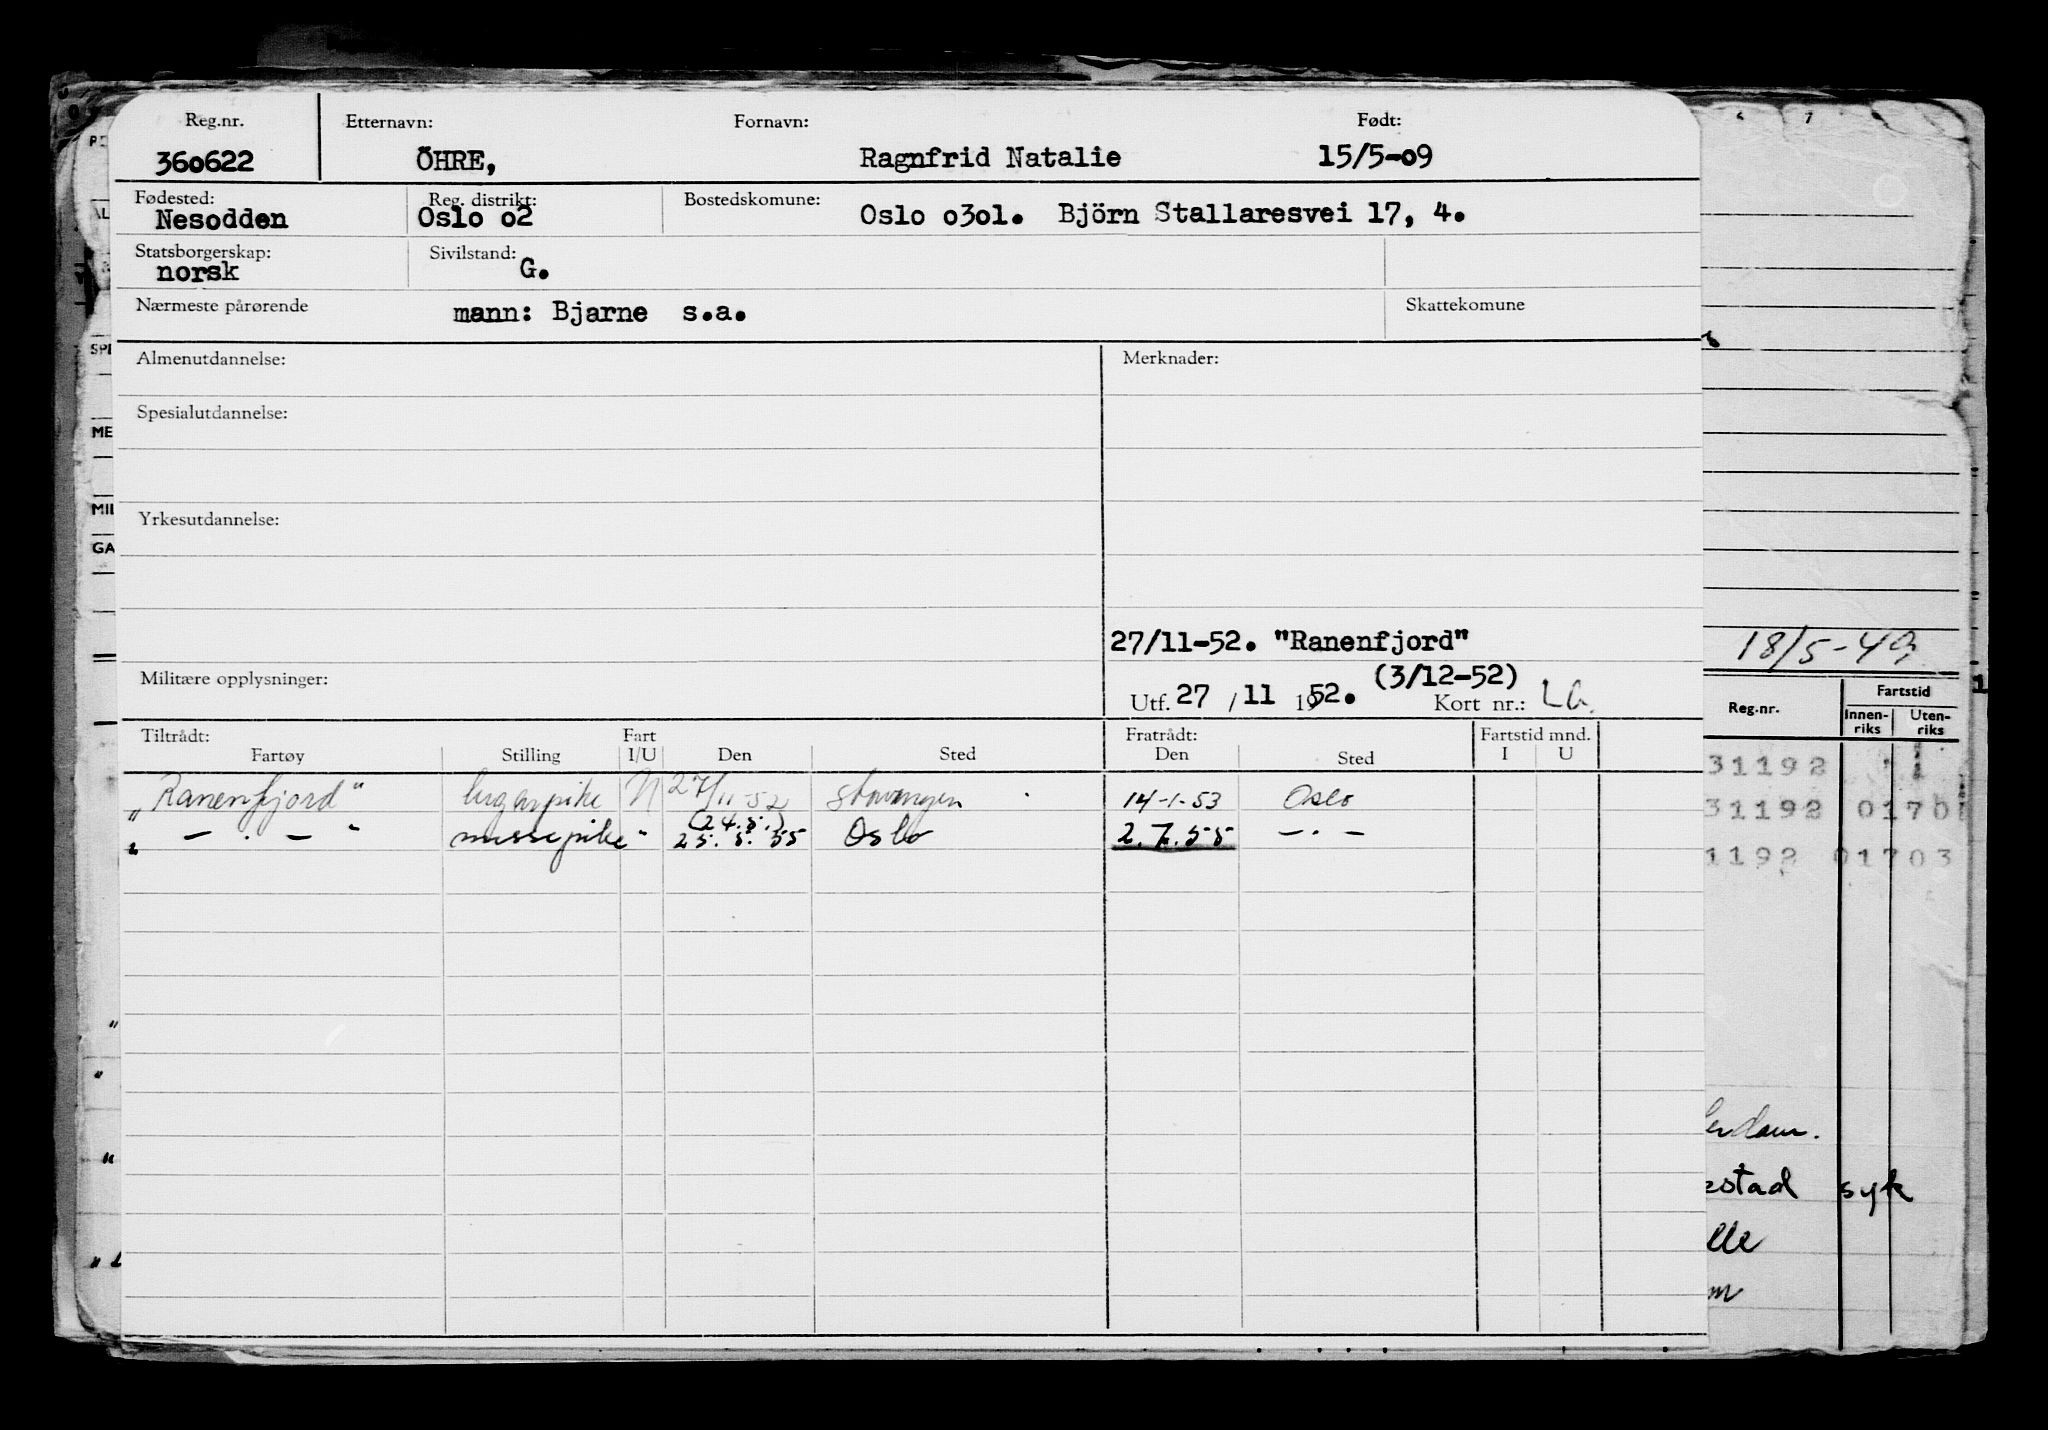 Reg.nr. Etternavn: Fornavn: Født:
360622 ÖHRE, Ragnfrid Natalie 15/5-09
Fødested: Reg. distrikt: Bostedskomune:
Nesodden Oslo o2 Oslo o3o1. Björn Stallaresvei 17, 4.
Statsborgerskap: Sivilstand:
norsk G.
Nærmeste pårørende mann: Bjarne s.a. Skattekomune
Almenutdannelse: Merknader:
Spesialutdannelse:
Yrkesutdannelse:
27/11-52. "Ranenfjord"
Militære opplysninger: (3/12-52)
Utf. 27 / 11 1952. Kort nr.:
Tiltrådt: Fart Fratrådt: Fartstid mnd.
Fartøy Stilling I/U Den Sted Den Sted I U
"Ranenfjord" lugarpike N 27/11-52 Stavanger 14-1-53 Oslo
(24.5.)
" — . — " messepike " 25.5.55 Oslo 2.7.55 — . —
18/5-49
Fartstid
Reg.nr.
Innen-riks Uten-riks
31192
31192 0170
1192 01703
erdam.
stad syk
lle
m
SPI
ME
MIL
GA